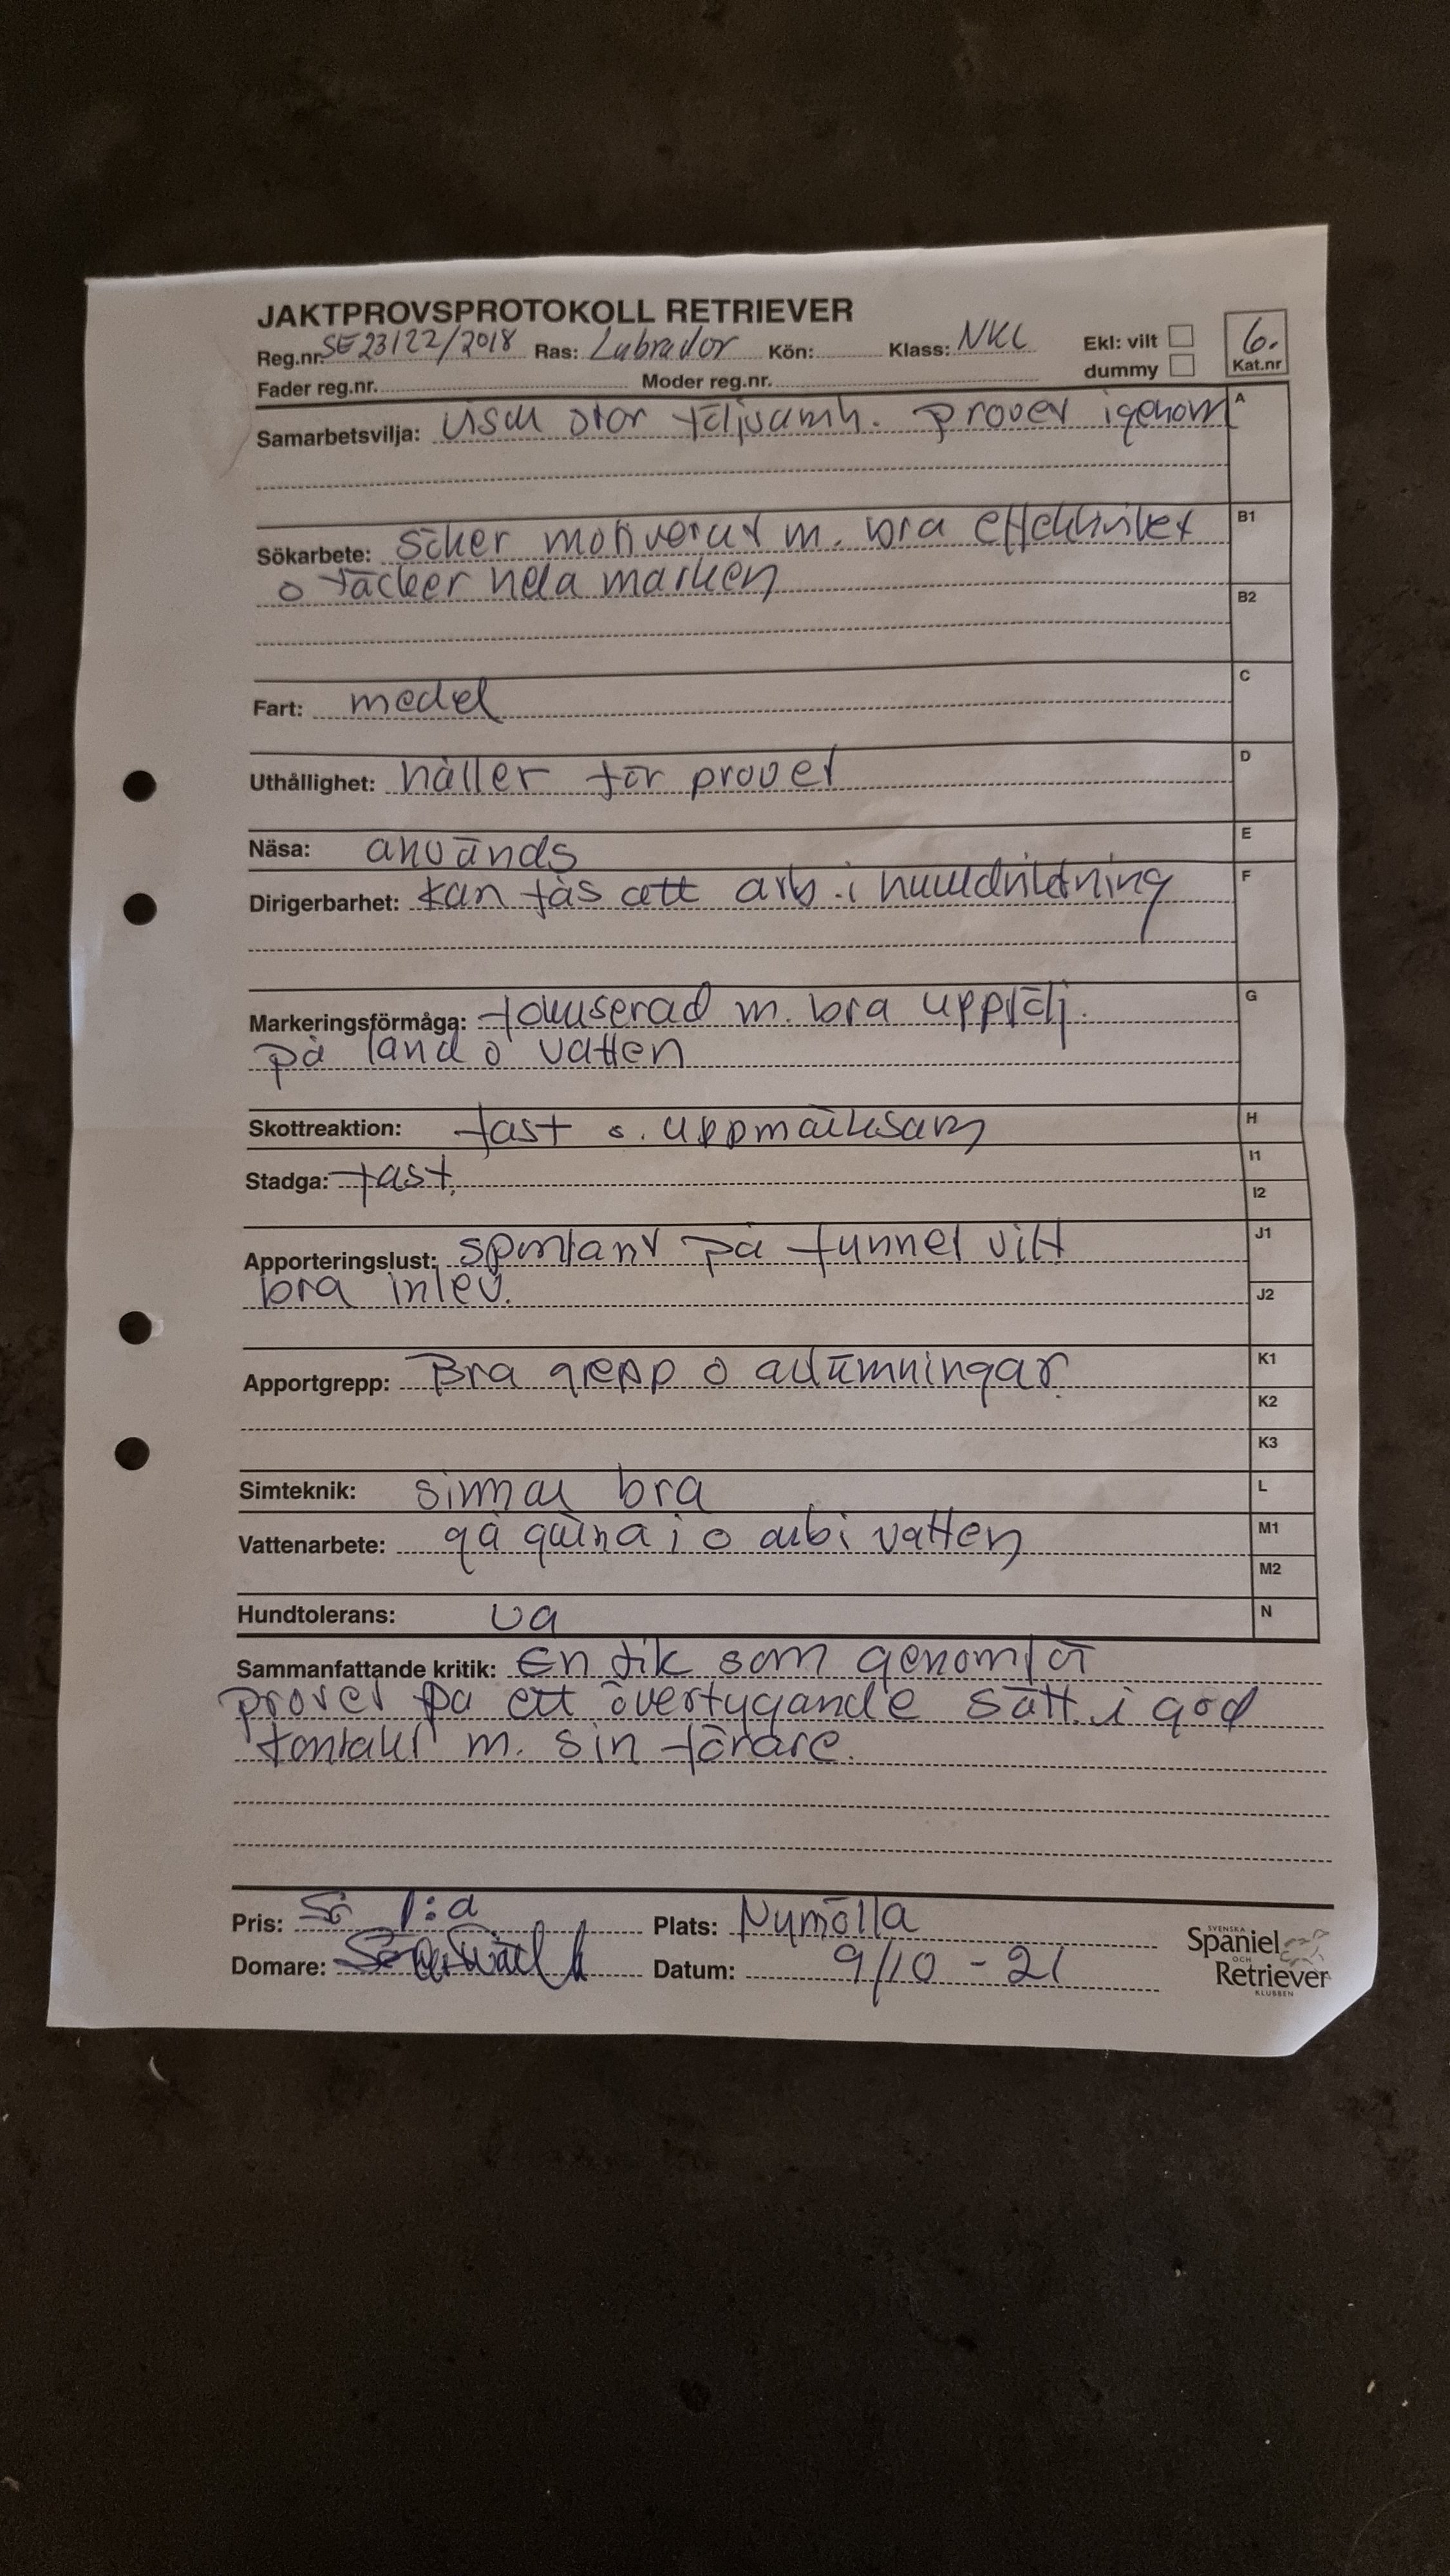 JAKTPROVSPROTOKOLL RETRIEVER
Reg.nr. SE23122/2018 Ras: Labrador Kön: Klass: NKL Ekl: vilt 6.
dummy Kat.nr
Fader reg.nr. Moder reg.nr.
Samarbetsvilja: visar stor följsamh. provet igenom A
Sökarbete: söker motiverat m. bra effektivitet B1
o täcker hela marken
B2
Fart: medel C
Uthållighet: håller för provet D
Näsa: används E
Dirigerbarhet: kan fås att arb. i huvudriktning F
Markeringsförmåga: fokuserad m. bra uppfölj. G
på land o vatten
Skottreaktion: fast o. uppmärksam H
Stadga: fast. I1
I2
Apporteringslust: spontant på funnet vilt J1
bra inlev. J2
Apportgrepp: Bra grepp o avlämningar. K1
K2
K3
Simteknik: simmar bra L
Vattenarbete: gå gärna i o arb i vatten M1
M2
Hundtolerans: ua N
Sammanfattande kritik: En tik som genomför
provet på ett övertygande sätt. i god
kontakt m. sin förare.
Pris: 1:a Plats: Nymölla
Domare: Datum: 9/10 - 21
SVENSKA
Spaniel
OCH
Retriever
KLUBBEN